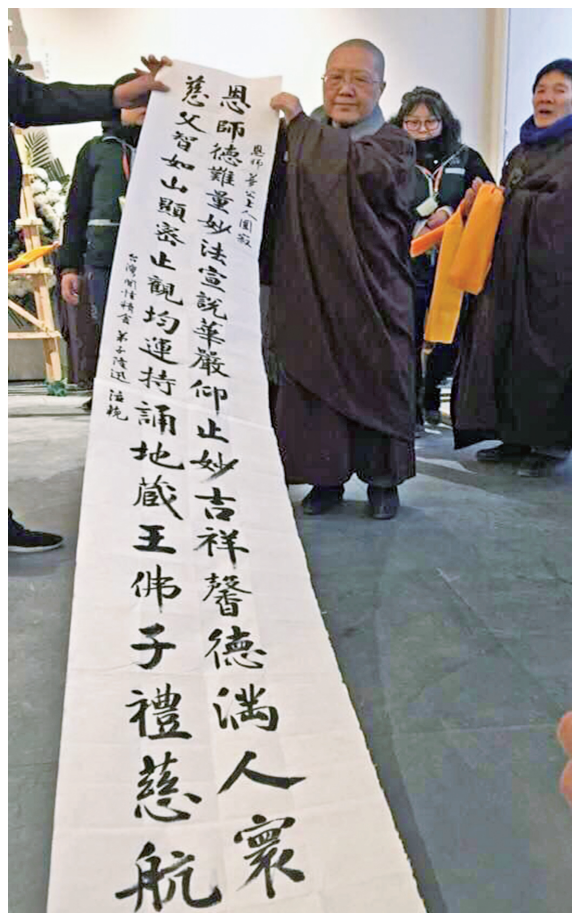 恩師夢公上人圓寂
恩師德難量妙法宣說華嚴仰止妙吉祥馨德滿人寰
慈父智如山顯密止觀均運持誦地藏王佛子禮慈航
台灣 精舍 弟子隆迅 泣輓